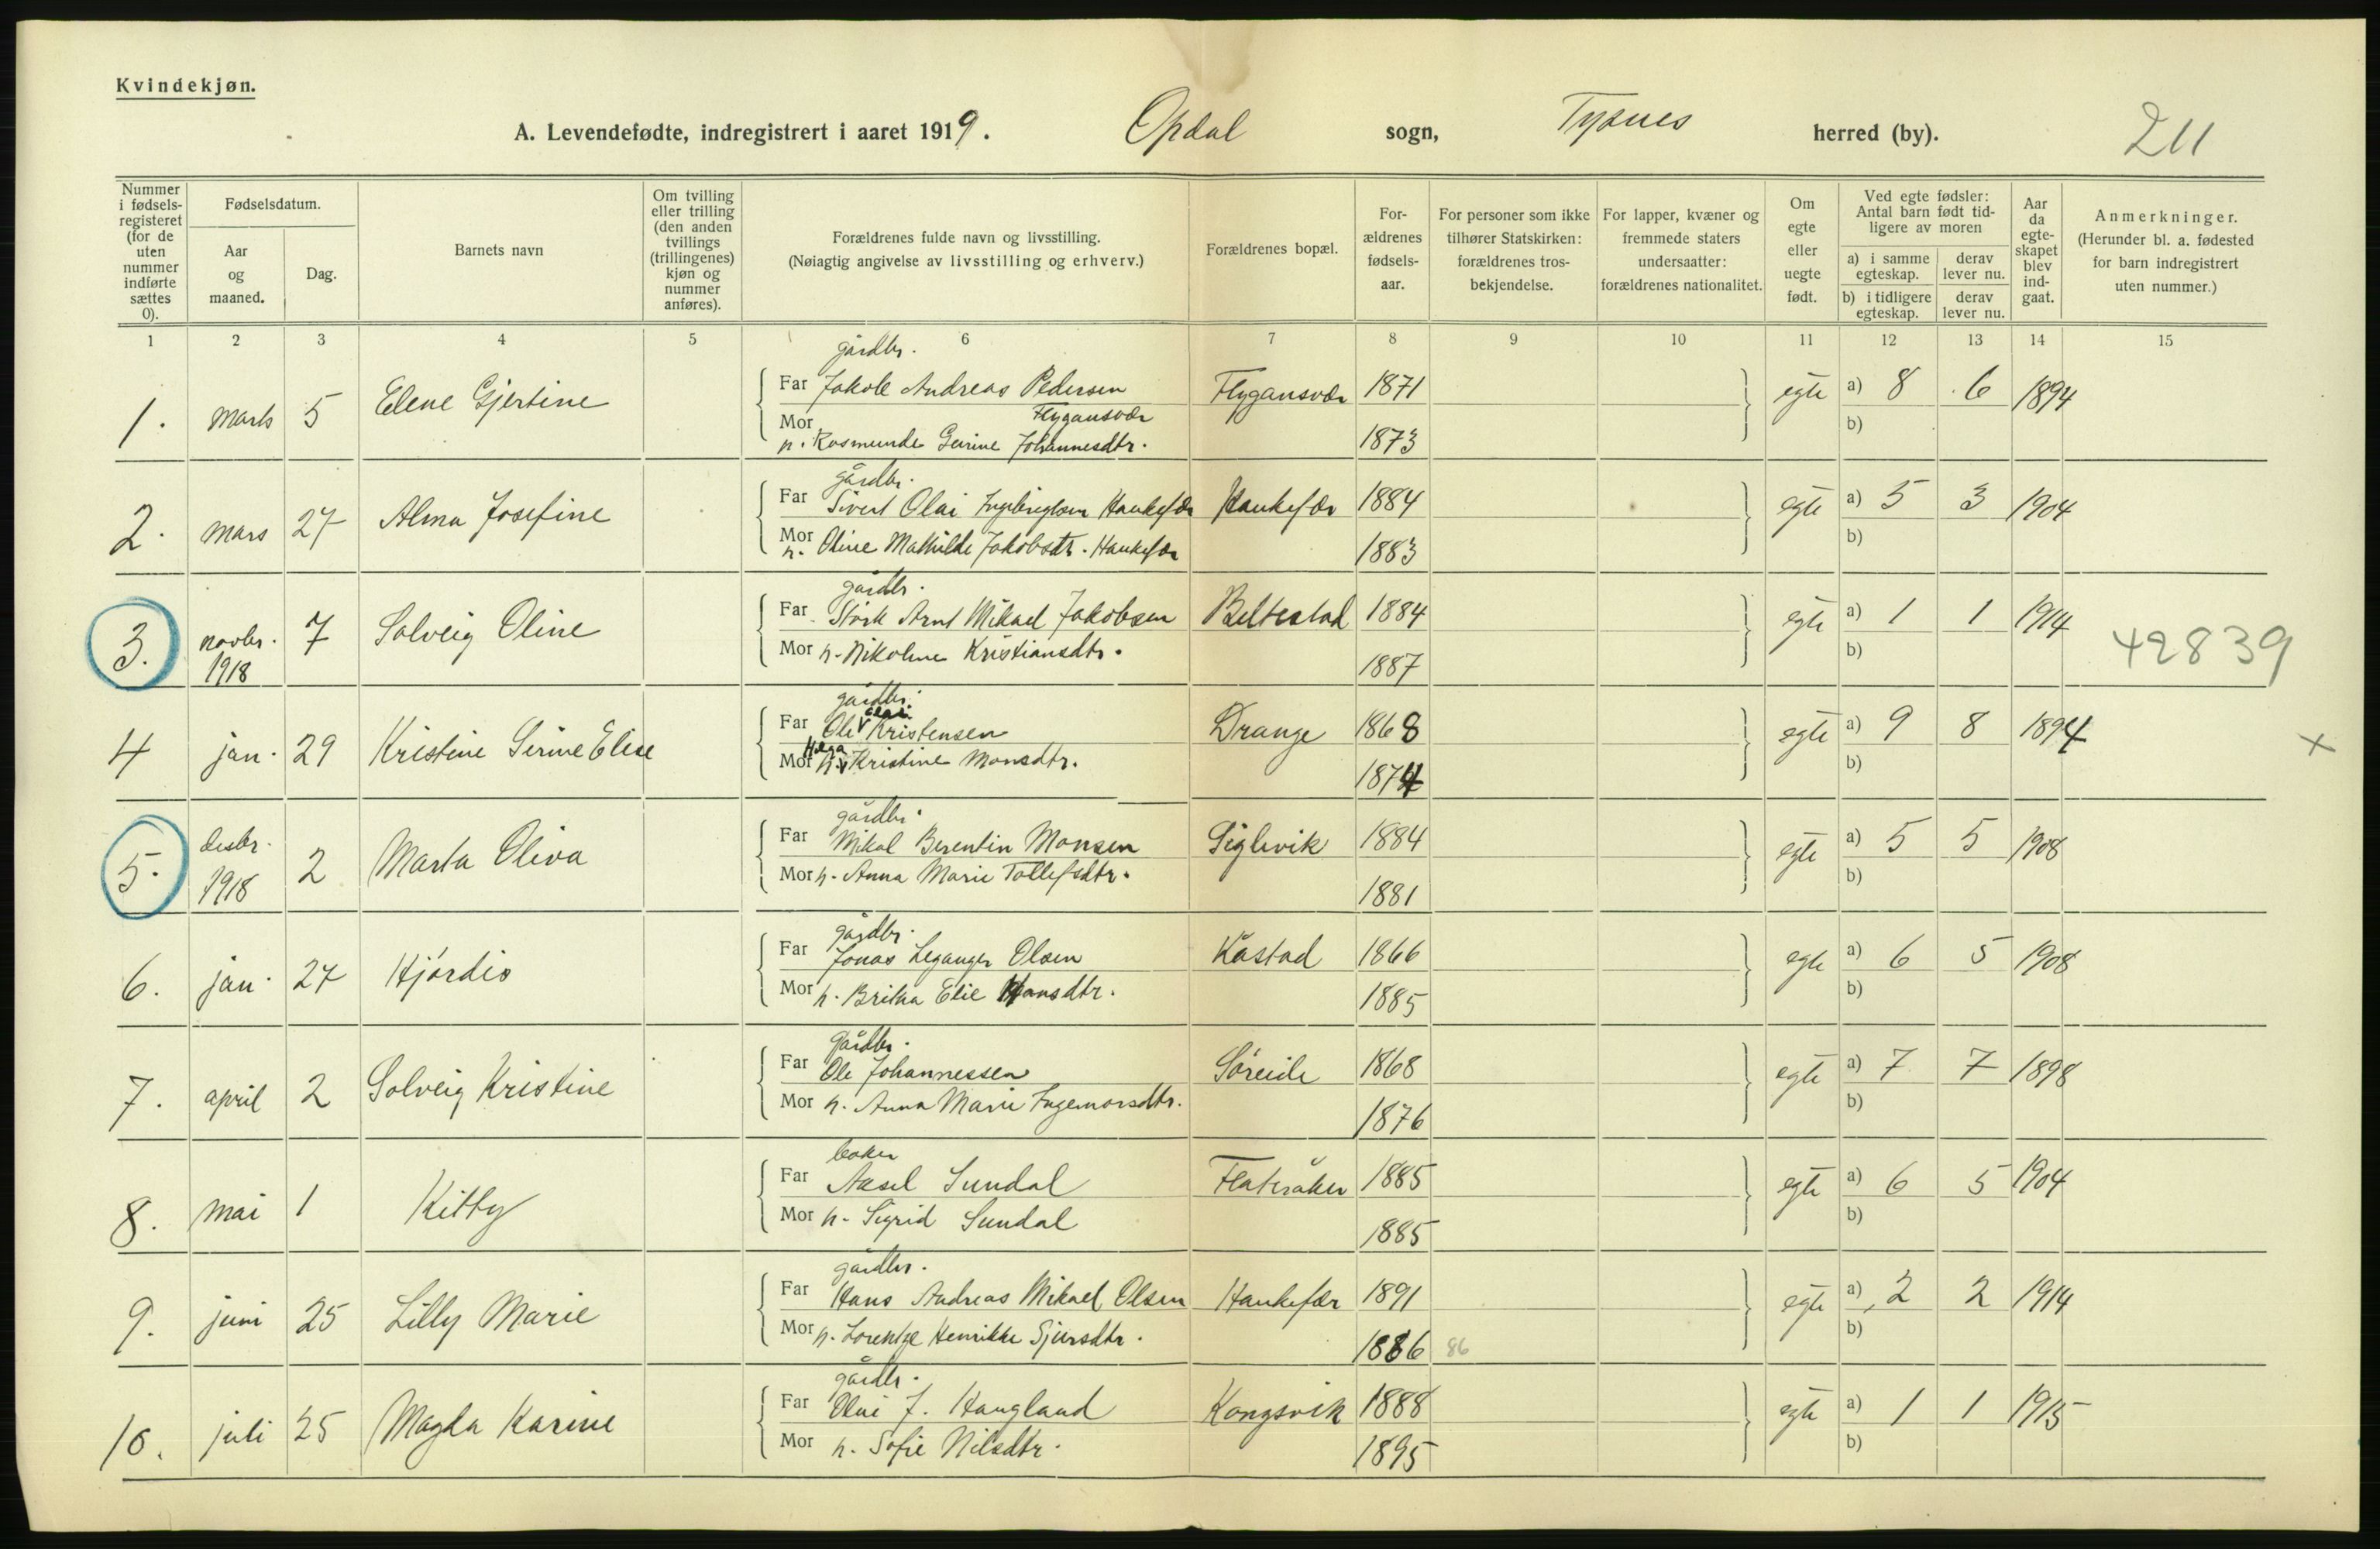 Kvindekjøn.
A. Levendefødte, indregistrert i aaret 1919. Opdal sogn, Tysnes herred (by). 211
Nummer i fødsels-registeret (for de uten nummer indførte sættes 0).
Fødselsdatum.
Aar og maaned.
Dag.
Barnets navn
Om tvilling eller trilling (den anden tvillings (trillingenes) kjøn og nummer anføres).
Forældrenes fulde navn og livsstilling.
(Nøiagtig angivelse av livsstilling og erhverv.)
Forældrenes bopæl.
For-ældrenes fødsels-aar.
For personer som ikke tilhører Statskirken: forældrenes tros-bekjendelse.
For lapper, kvæner og fremmede staters undersaatter: forældrenes nationalitet.
Om egte eller uegte født.
Ved egte fødsler: Antal barn født tid-ligere av moren
a) i samme egteskap.
derav lever nu.
b) i tidligere egteskap.
derav lever nu.
Aar da egte-skapet blev ind-gaat.
Anmerkninger.
(Herunder bl. a. fødested for barn indregistrert uten nummer.)
1 2 3 4 5 6 7 8 9 10 11 12 13 14 15
gårdbr.
1. Marts 5 Elene Gjertine Far Jakob Andreas Pedersen Flygansvær 1871 egte a) 8 6 1894
Flygansvær
Mor h. Rasmunde Serine Johannesdtr. 1873 b)
gårdbr.
2. mars 27 Alma Josefine Far Sivert Olai Ingebrigtsen Haukefær Haukefær 1884 egte a) 5 3 1904
Mor h. Oline Mathilde Jakobsdtr. Haukefær 1883 b)
gårdbr.
3. novbr. 1918 7 Solveig Oline Far Stork Arnt Mikael Jakobsen Beltestad 1884 egte a) 1 1 1914 42839
Mor h. Nikoline Kristiansdtr. 1887 b)
gårdbr.
4 jan. 29 Kristine Serine Elise Far Ole Olai Kristensen Drange 1868 egte a) 9 8 1894 x
Mor h. Helga Kristine Monsdtr. 1874 b)
gårdbr.
5. desbr. 1918 2 Marta Oliva Far Mikal Berentin Monsen Siglevik 1884 egte a) 5 5 1908
Mor h. Anna Marie Tollefsdtr. 1881 b)
gårdbr.
6. jan. 27 Hjördis Far Jonas Leganger Olsen Kåstad 1866 egte a) 6 5 1908
Mor h. Britha Elie Hansdtr. 1885 b)
gårdbr.
7. april 2 Solveig Kristine Far Ole Johannessen Søreide 1868 egte a) 7 7 1898
Mor h. Anna Marie Ingemorsdtr. 1876 b)
baker
8. mai 1 Kitty Far Aksel Sundal Flateråker 1885 egte a) 6 5 1904
Mor h. Sigrid Sundal 1885 b)
gårdbr.
9. juni 25 Lilly Marie Far Hans Andreas Mikael Olsen Haukefær 1891 egte a) 2 2 1914
Mor h. Lorentze Henrikke Sjursdtr. 1886 86 b)
gårdbr.
10. juli 25 Magda Karine Far Olai J. Haugland Kongsvik 1888 egte a) 1 1 1915
Mor h. Sofie Nilsdtr. 1895 b)